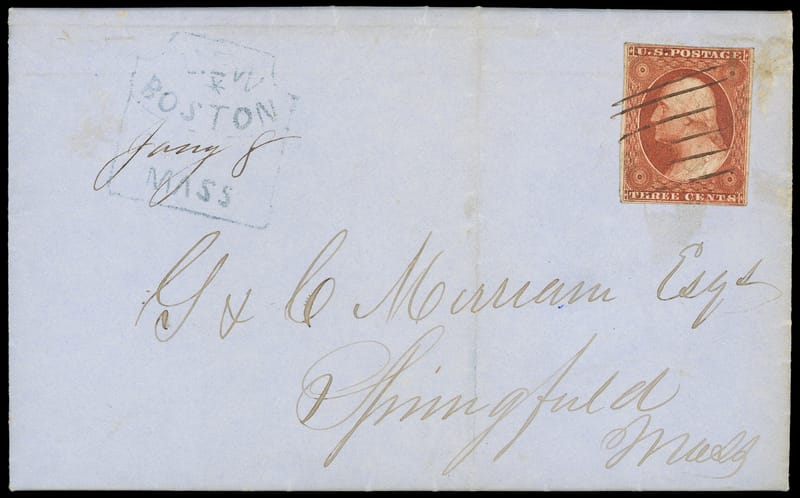 NEW
BOSTON
Jany 8
MASS
U.S. POSTAGE
THREE CENTS
G & C Merriam Esqs
Springfield
Mass